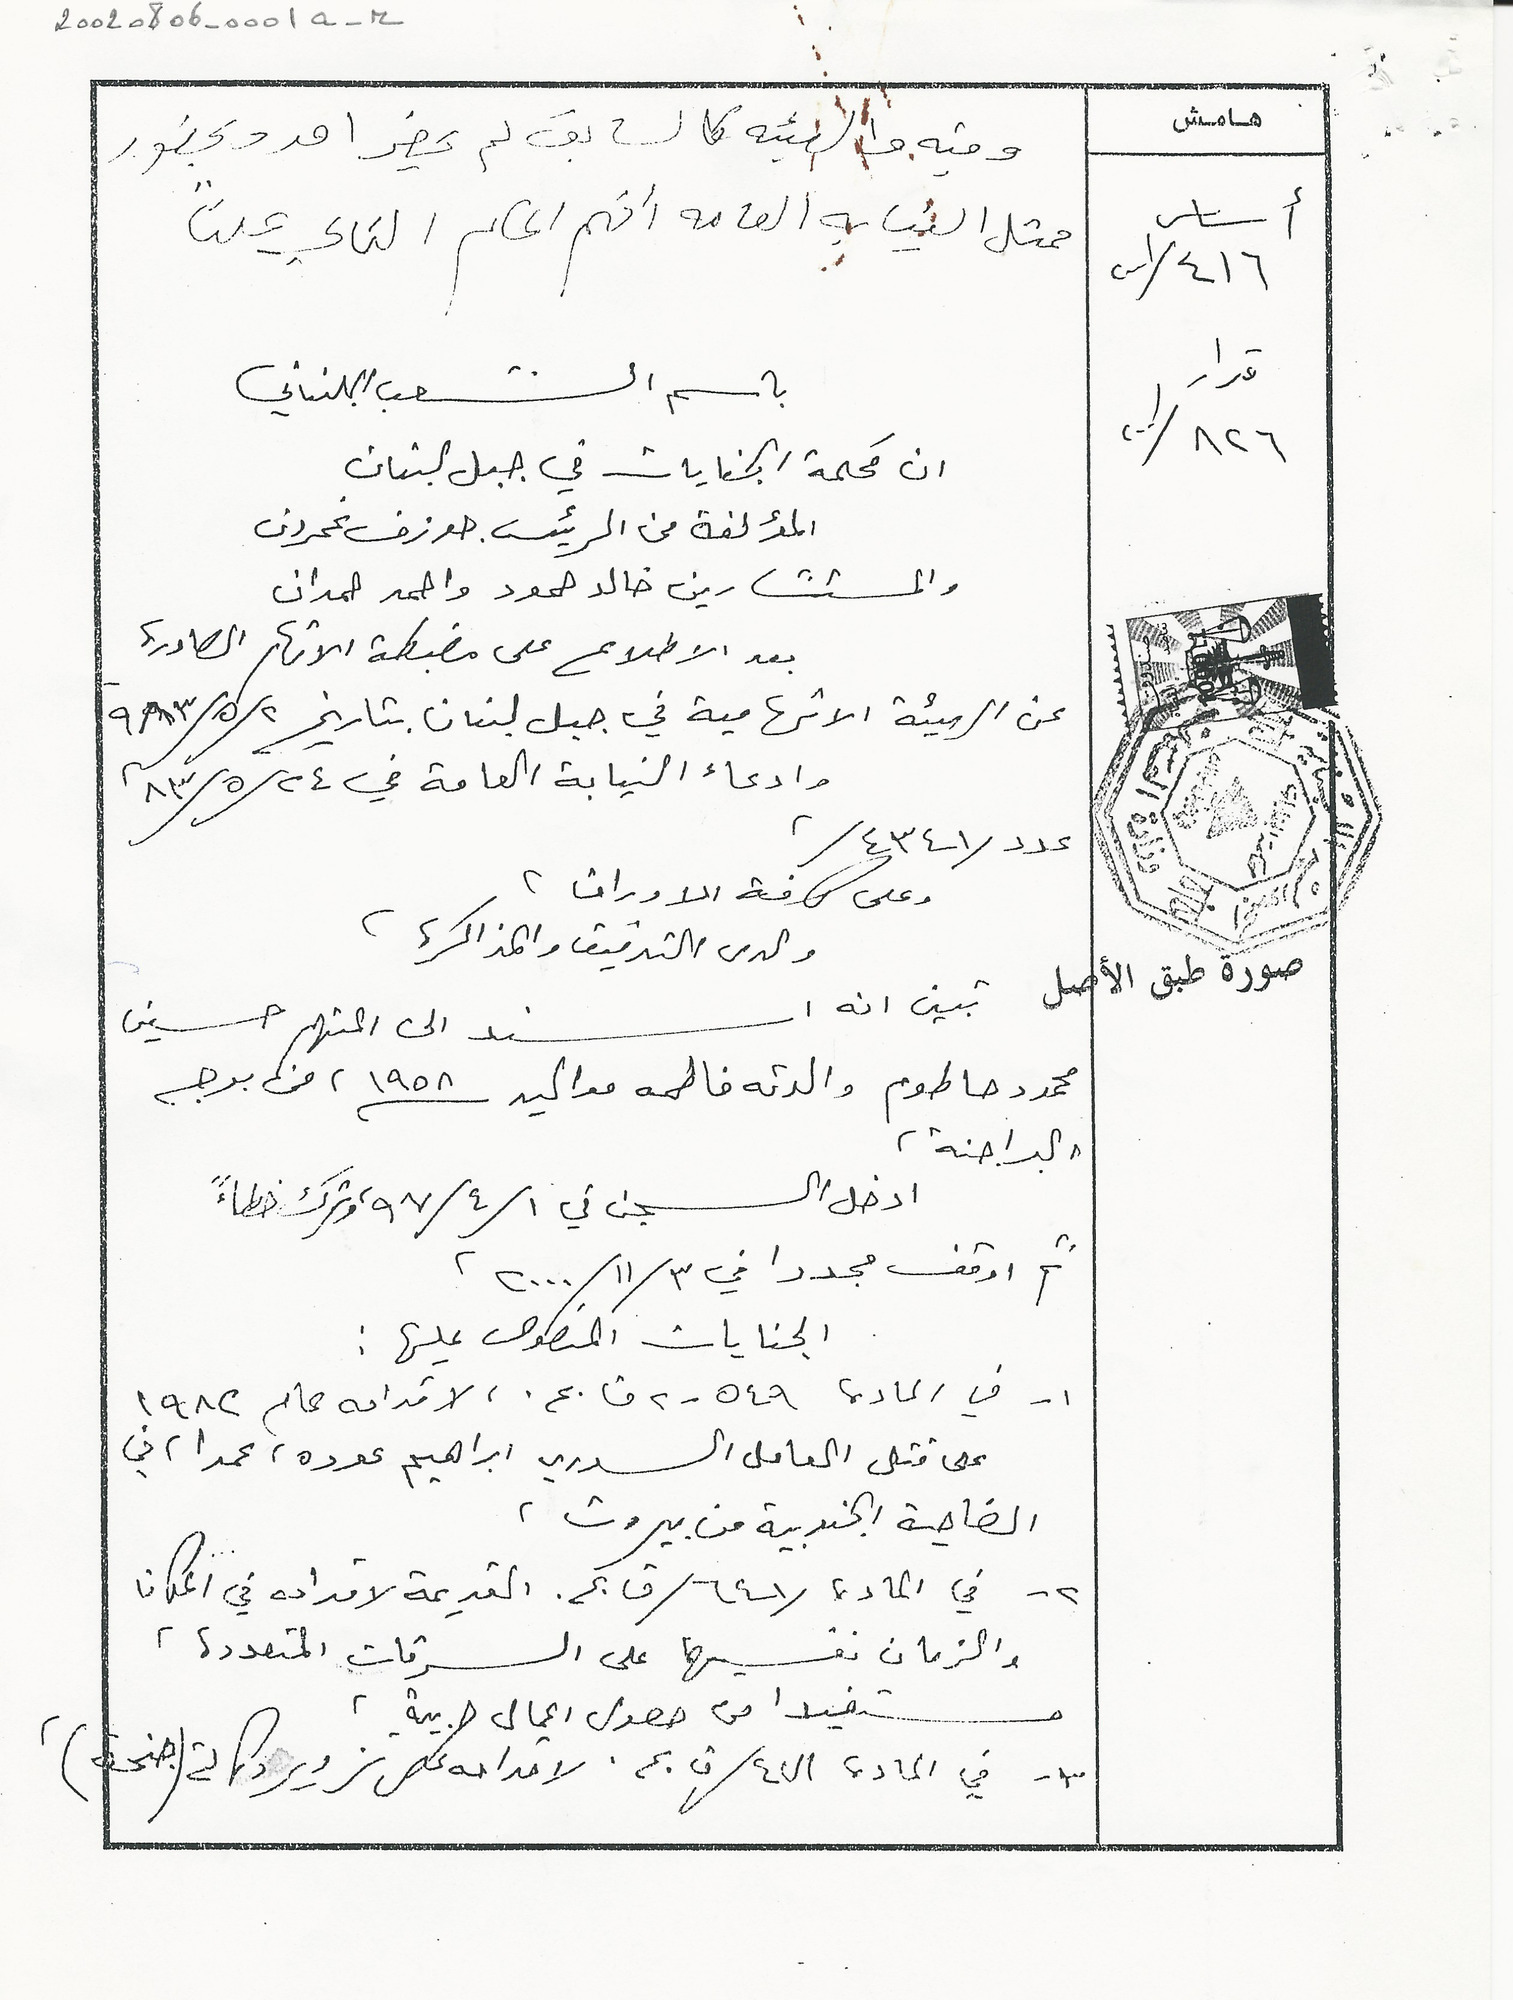 20020806_0001a_r
هامش
وفيه والهيئه كالسابق لم يحضر احد وبحضور
ممثل النيابه العامه أفهم الحكم التالي علناً
أساس
٤١٦/
قرار
٨٢٦/
باسم الشعب اللبناني
ان محكمة الجنايات في جبل لبنان
المؤلفة من الرئيس جوزف غمرون
والمستشارين خالد حمود واحمد حمدان
بعد الاطلاع على مضبطة الاتهام الصادرة
عن الهيئة الاتهامية في جبل لبنان بتاريخ ٢/٥/٩٨٣
وادعاء النيابة العامة في ٢٤/٥/٨٣،
عدد /٤٣٤١/،
وعلى كافة الاوراق،
ولدى التدقيق والمذاكرة،
صورة طبق الأصل
تبين انه اسند الى المتهم حسين
محمود حاطوم والدته فاطمه مواليد ١٩٥٨، من برج
البراجنة،
ادخل السجن في ١/٤/٩٧، وترك خطاءً
ثم اوقف مجددا في ٣/١١/٢٠٠٠،
الجنايات المنصوص عليها :
١- في المادة ٥٤٩-٢ ق.ع.، لاقدامه عام ١٩٨٢
على قتل العامل السوري ابراهيم عوده، عمدا، في
الضاحية الجنوبية من بيروت،
٢- في المادة /٦٤١/ق.ع. القديمة لاقدامه في المكان
والزمان نفسيهما على السرقات المتعددة،
مستفيدا من حصول اعمال حربية،
٣- في المادة ٤٧١/ق.ع. لاقدامه على تزوير وكالة (جنحة)،